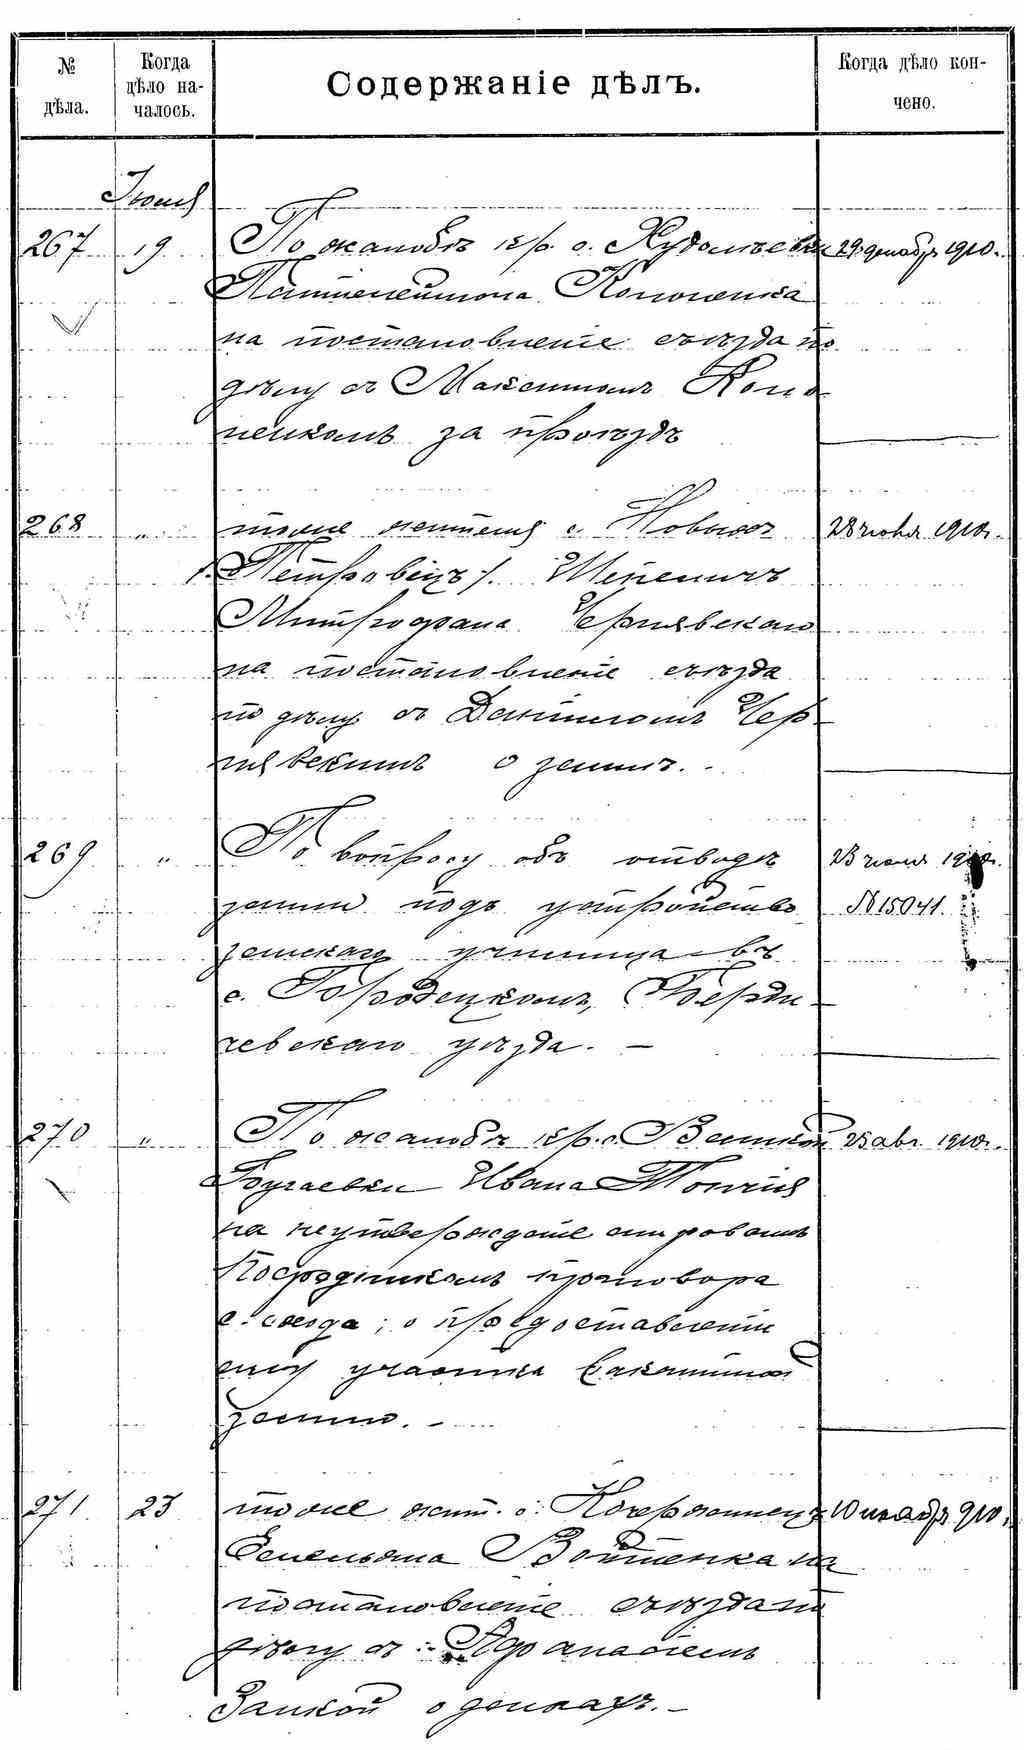 № дѣла.
Когда дѣло началось.
Содержаніе дѣлъ.
Когда дѣло кончено.
Іюня
267 19 По жалобѣ кр. с. 29 декабр 1910.
Пантелеймона Кононенка
на постановленіе съѣзда по
дѣлу съ Максимомъ Коно
ненкомъ за проѣздъ
268 " тоже жителя с. Новыхъ 28 1910.
Петровецъ
Митрофана Чернявскаго
на постановленіе съѣзда
по дѣлу съ Чер
нявскимъ о землѣ.
269 " По вопросу объ отводѣ
земли подъ устройство № 15041.
земскаго училища въ
с. Городецкомъ, Берди
чевскаго уѣзда.
270 " По жалобѣ кр. с. Великой 25 авг 1910.
Бугаевки Ивана
на неутвержденіе мировымъ
Посредникомъ приговора
с. схода, о предоставленіи
ему участка вакантной
земли.
271 23 тоже жит. с. 10 ноябр 910.
Емельяна Войтенка на
постановленіе съѣзда по
дѣлу съ Афанасіемъ
Заикой о деньгахъ.